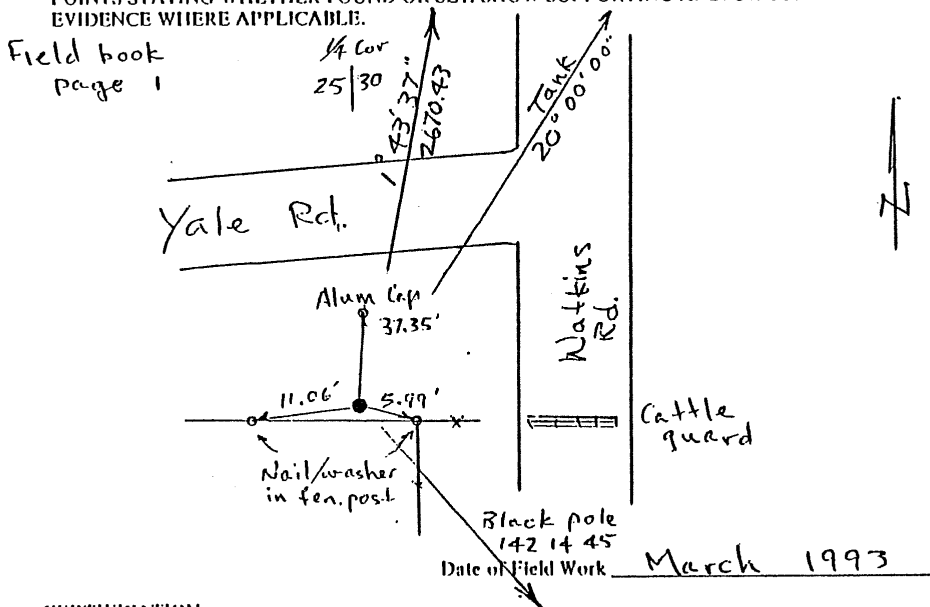 EVIDENCE WHERE APPLICABLE.
Field book
page 1
1/4 Cor
25|30
1° 43' 37"
2670.43
Tank
20° 00' 00"
Yale Rd.
N
Alum Cap
37.35'
Watkins
Rd.
11.06'
5.99'
Cattle
guard
Nail/washer
in fen. post
Black pole
142 14 45
Date of Field Work March 1993